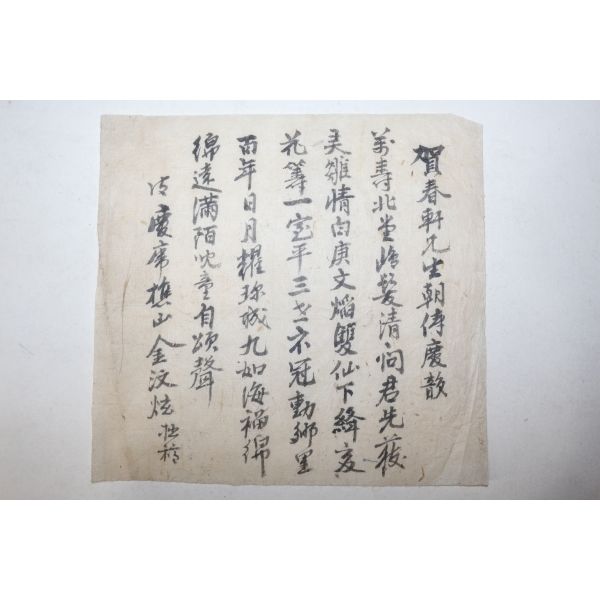 賀春軒先生朝傳慶韻
萬壽北堂皓髮清向君先獲
吴雛情内庚文焰雙仙下絳亥
花籌一室平三老衣冠動鄉里
百年日月耀珎城九如海福綿
綿遠滿陌兒童自頌聲
慶席樵山金汶炫拙稿